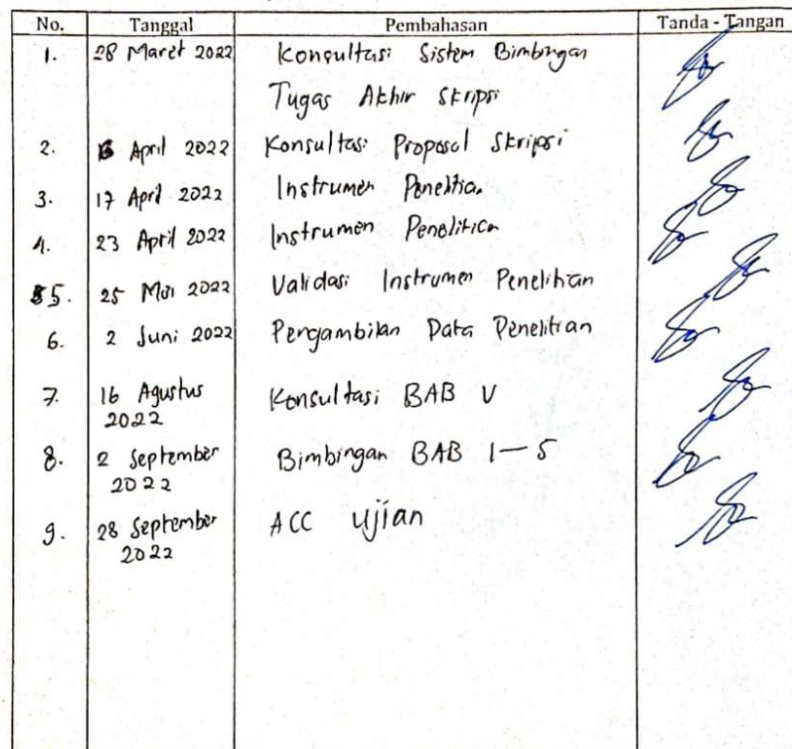 No. Tanggal Pembahasan Tanda - Tangan
1. 28 Maret 2022 Konsultasi Sistem Bimbingan
Tugas Akhir Skripsi
2. April 2022 Konsultasi Proposal Skripsi
3. 17 April 2022 Instrumen Penelitian
4. 23 April 2022 Instrumen Penelitian
5. 25 Mei 2022 Validasi Instrumen Penelitian
6. 2 Juni 2022 Pengambilan Data Penelitian
7. 16 Agustus Konsultasi BAB V
2022
8. 2 September Bimbingan BAB 1 — 5
2022
9. 28 September ACC ujian
2022